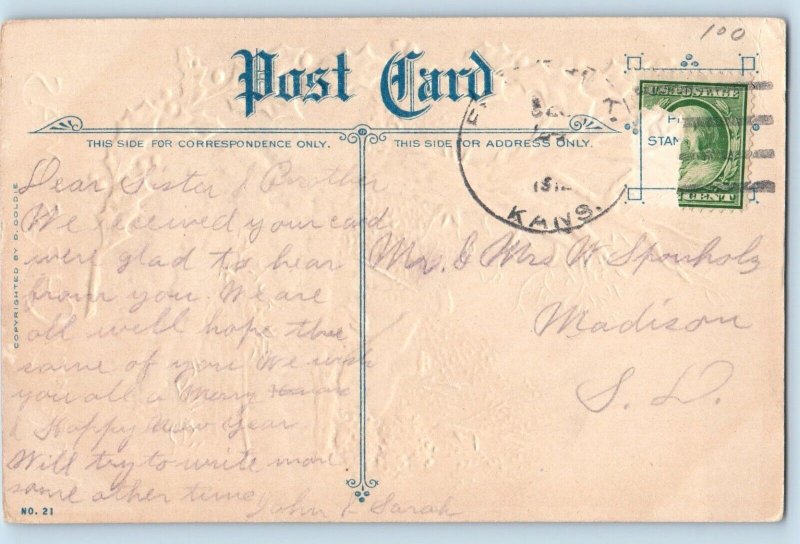 100
Post Card
THIS SIDE FOR CORRESPONDENCE ONLY.
THIS SIDE FOR ADDRESS ONLY.
KANS.
U.S. POSTAGE
STAM
CENT
COPYRIGHTED BY D. GOLDIE
Dear Sister & Brother
We received your card
were glad to hear
from you. We are
all well hope the
same of you We wish
you all a Merry
& Happy New Year
Will try to write more
some other time
John & Sarah
Mr. & Mrs W Sponholz
Madison
S. D.
NO. 21